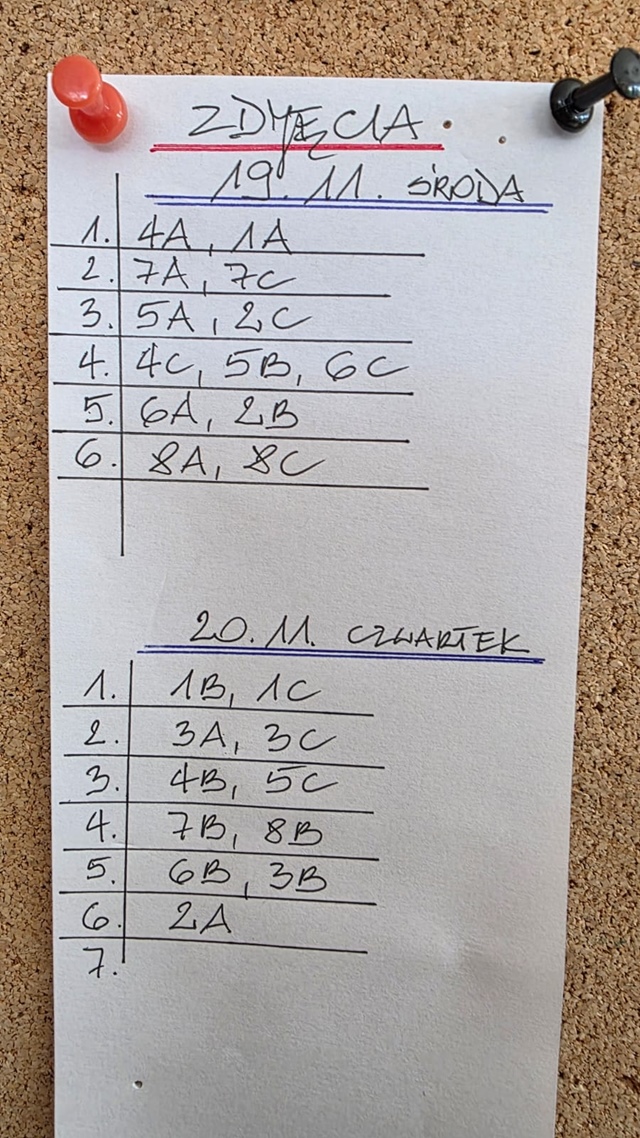 ZDJĘCIA
19.11. ŚRODA
1. 4A, 1A
2. 7A, 7C
3. 5A, 2C
4. 4C, 5B, 6C
5. 6A, 2B
6. 8A, 8C
20.11. CZWARTEK
1. 1B, 1C
2. 3A, 3C
3. 4B, 5C
4. 7B, 8B
5. 6B, 3B
6. 2A
7.